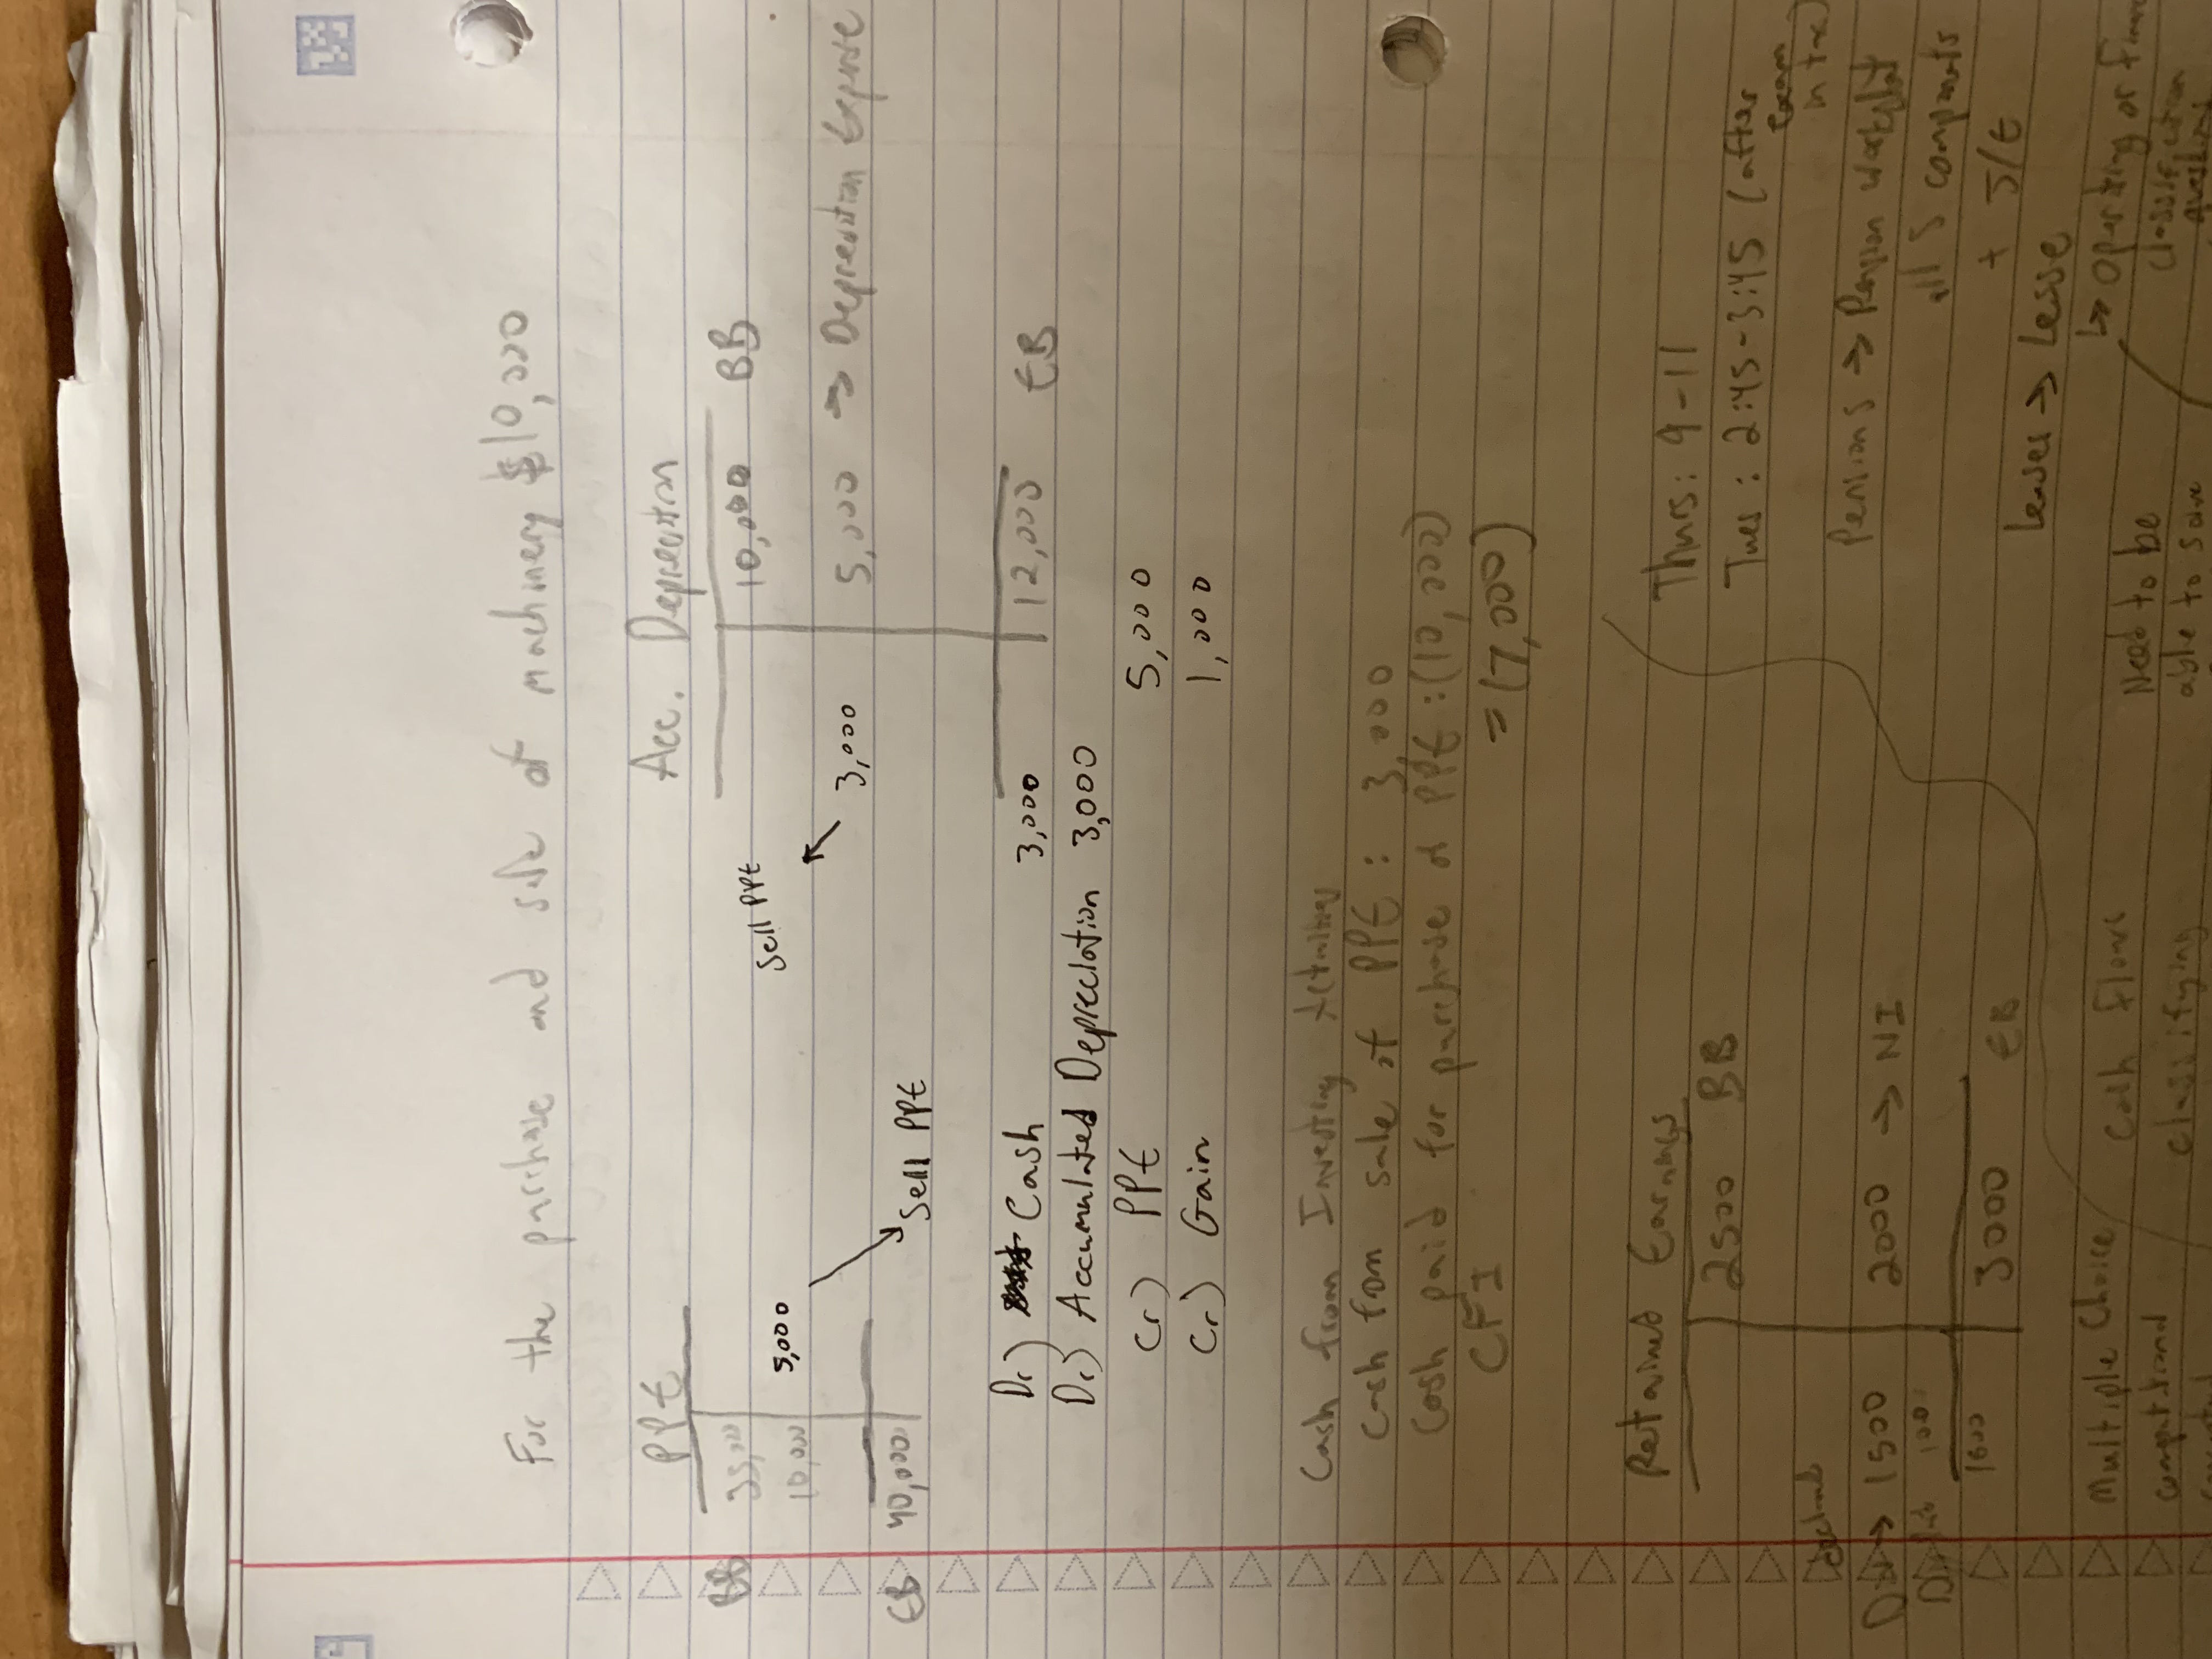 For the purchase and sale of machinery $10,000
PPE Acc. Depreciation
BB 35,000 10,000 BB
10,000 5,000 Sell PPE
3,000 5,000 → Depreciation Expense
EB 40,000 Sell PPE
Dr) Cash 3,000 12,000 EB
Dr) Accumulated Depreciation 3,000
Cr) PPE 5,000
Cr) Gain 1,000
Cash from Investing Activities
Cash from sale of PPE : 3,000
Cash paid for purchase of PPE : (10,000)
CFI = (7,000)
Retained Earnings
2500 BB
Div → 1500 2000 → NI
1600 3000 EB
Thurs: 9-11
Tues: 2:45-3:45 (after
exam
in tax)
Pensions → Pension worksheet
all 5 components
+ J/E
Leases → Lease
↳ Operating or
classification
Multiple Choice Cash Flows Need to be
computational classifying able to solve